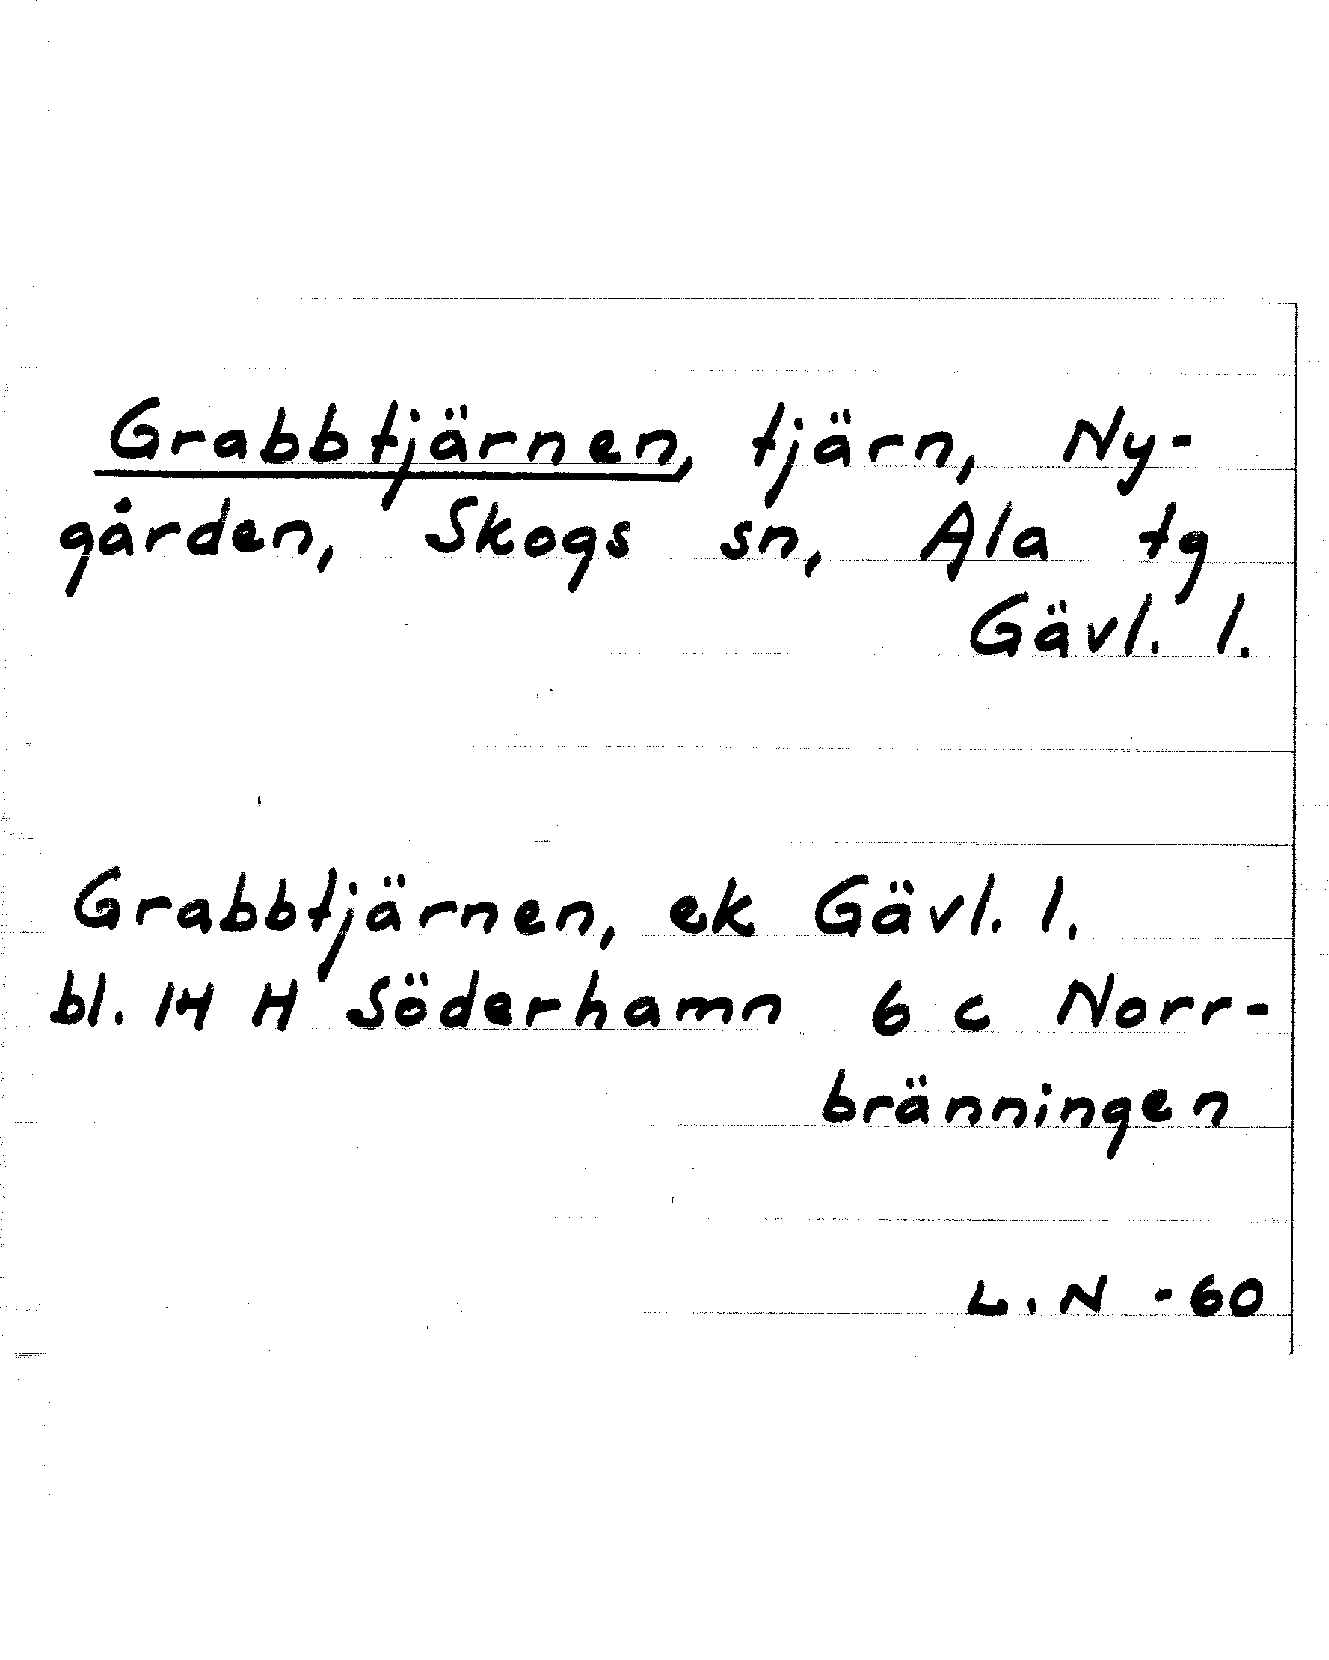 Grabbtjärnen, tjärn, Ny-
gården, Skogs sn, Ala tg
Gävl. l.
Grabbtjärnen, ek Gävl. l.
bl. 14 H Söderhamn 6 c Norr-
bränningen
L.N -60